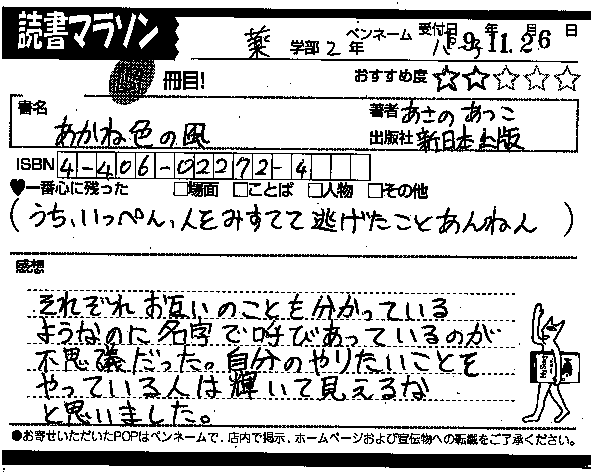 読書マラソン
薬 学部 2年 ペンネーム 受付日 年 月 日
冊目!
おすすめ度 ☆☆☆☆☆
書名 あかね色の風
著者 あさの あつこ
出版社 新日本出版
ISBN 4-406-02272-4
♥一番心に残った □場面 □ことば □人物 □その他
(うち、いっぺん、人をみすてて逃げたことあんねん)
感想
それぞれお互いのことを分かっている
ようなのに名字で呼びあっているのが
不思議だった。自分のやりたいことを
やっている人は輝いて見えるな
と思いました。
●お寄せいただいたPOPはペンネームで、店内で掲示、ホームページおよび宣伝物への転載をご了承ください。